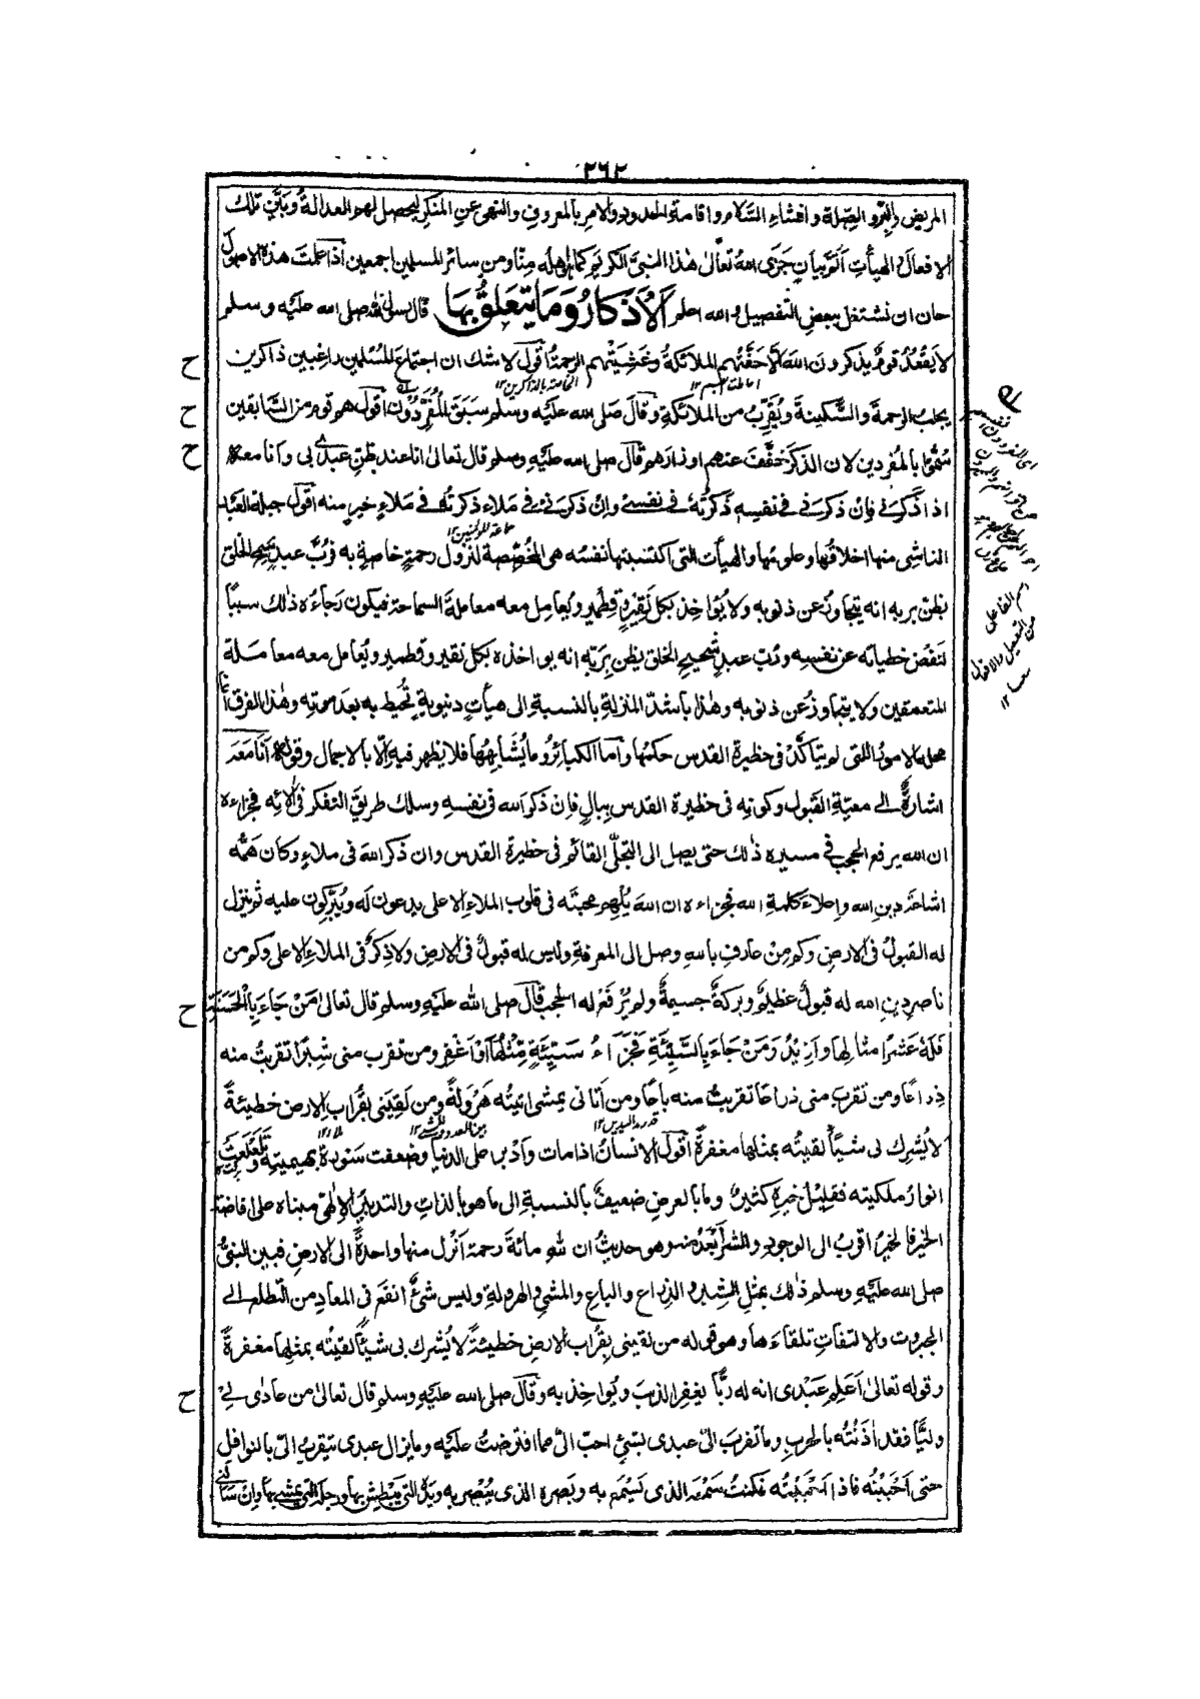 ٢٦٢
المريض والبر والصلة وافشاء السلام واقامة الحدود والامر بالمعروف والنهى عن المنكر ليحصل لهم العدالة وباقى تلك
الافعال والهيأت التوبيات جزى الله تعالى هذا النبى الكريم كما هو اهله منا ومن سائر المسلمين اجمعين اذا علمت هذه الاصول
حان ان نشتغل ببعض التفصيل والله اعلم اَلْاَذْكَارُ وَمَا يَتَعَلَّقُ بِهَا قال رسول الله صلى الله عليه وسلم
لا يَقعُدُ قوم يذكرون الله الا حَفَّتهم الملائكة وغشيتهم الرحمة اقول لا شك ان اجتماع المسلمين راغبين ذاكرين
يجلب الرحمة والسكينة ويُقرِّب من الملائكة وقال صلى الله عليه وسلم سبق المُفرِّدُون اقول هم قوم من السابقين
سُمُّوا بالمفردين لان الذكر خفَّف عنهم اوزارهم قال صلى الله عليه وسلم قال تعالى انا عند ظن عبدى بى وانا معه
اذا ذكرنى فان ذكرنى فى نفسه ذكرتُه فى نفسى وان ذكرنى فى ملاء ذكرتُه فى ملاءٍ خير منه اقول جبلة العبد
الناشى منها اخلاقها وعلومها والهيأت التى اكتسبتها نفسه هى المخصّصة لنزول رحمةٍ خاصةٍ به فرُبَّ عبدٍ سمح الخلق
يظن بربه انه يتجاوز عن ذنوبه ولا يُواخِذ بكل نقيرٍ وقطميرٍ ويُعامِل معه معاملة السماحة فيكون رجاءُه ذلك سببًا
لنفض خطياته عن نفسه ورُبّ عبدٍ شحيح الخلق يظن بربّه انه يواخذه بكل نقير وقطمير ويُعامل معه معاملة
المتعمقين ولا يتجاوز عن ذنوبه وهذا باشدّ المنزلة بالنسبة الى هيأتٍ دنيويةٍ تُحيط به بعد موته وهذا الفرق انما
محله الامور التى لم يتاكَّدْ فى حظيرة القدس حكمها واما الكبائر وما يُشابِهُها فلا يظهر فيه الا بالاجمال وقوله اَنَا معه
اشارة الى معيّة القبول وكونه فى حظيرة القدس ببالٍ فان ذكر الله فى نفسه وسلك طريق التفكر فى الائه فجزاءه
ان الله يرفع الحجب فى مسيره ذلك حتى يصل الى التجلّى القائم فى حظيرة القدس وان ذكر الله فى ملاءٍ وكان همُّه
اشاعة دين الله واعلاء كلمة الله فجزاءه ان الله يُلهِم محبّتَه فى قلوب الملاء الاعلى يدعون له ويُبرِّكون عليه ثم ينزل
له القبول فى الارض وكم مِنْ عارفٍ بالله وصل الى المعرفة وليس له قبولٌ فى الارض ولا ذكرٌ فى الملاء الاعلى وكم من
ناصر دين الله له قبولٌ عظيمٌ وبركةٌ جسيمةٌ ولم يُرْفَعْ له الحجب قال صلى الله عليه وسلم قال تعالى مَنْ جَاءَ بِالْحَسَنَةِ
فَلَهٗ عَشْرُ امثالها وازيدُ وَمَنْ جَاءَ بِالسَّيِّئَةِ فَجَزَاءُ سَيِّئَةٍ مِّثْلُهَا اَوْ اَغْفِر ومن تقرب منى شبرًا تقربتُ منه
ذراعًا ومن تقرب منى ذراعًا تقربتُ منه باعًا ومن اَتانى يمشى اتيتُه هَرْوَلةً ومن لَقِيَنى بقُراب الارض خطيئةً
لا يُشرِك بى شيئًا لقيتُه بمثلها مغفرةً اقول الانسان اذا مات وادبر على الدنيا وضعفت سَورة بهيميته وتَلَعلَعت
انوار ملكيته فقليلُ خيرِه كثيرٌ وما بالعرض ضعيفٌ بالنسبة الى ما هو بالذات والتدبير الالهى مبناه على افاضة
الخير فالخير اقرب الى الوجود والشر اَبْعَدُ منه وهو حديثُ ان لله مائةَ رحمة اَنزل منها واحدةً الى الارض فبين النبىُّ
صلى الله عليه وسلم ذلك بمثل الشبر والذراع والباع والمشى والهرولة وليس شىءٌ انفع فى المعاد من التطلع الى
الجبروت والالتفات تلقاءها وهو قوله من لقينى بقُراب الارض خطيئةً لا يُشرك بى شيئًا لقيتُه بمثلها مغفرةً
وقوله تعالى اَعَلِمَ عَبْدى انه له ربًّا يغفر الذنب ويُواخِذ به وقال صلى الله عليه وسلم قال تعالى من عادى لى
وليًّا فقد اٰذَنْتُه بالحرب وما تقرب الىّ عبدى بشئٍ احبّ الىّ مما افترضتُ عليه وما يزال عبدى يتقرب الىّ بالنوافل
حتى اَحْبَبْتُه فاذا اَحْبَبْتُه فكنتُ سَمْعَه الذى يَسْمَع به وبَصَره الذى يُبْصِر به ويَدَه التى يَبْطِش بها ورجله التى يمشى بها وان سألنى
ح
ح
ح
ح
ح